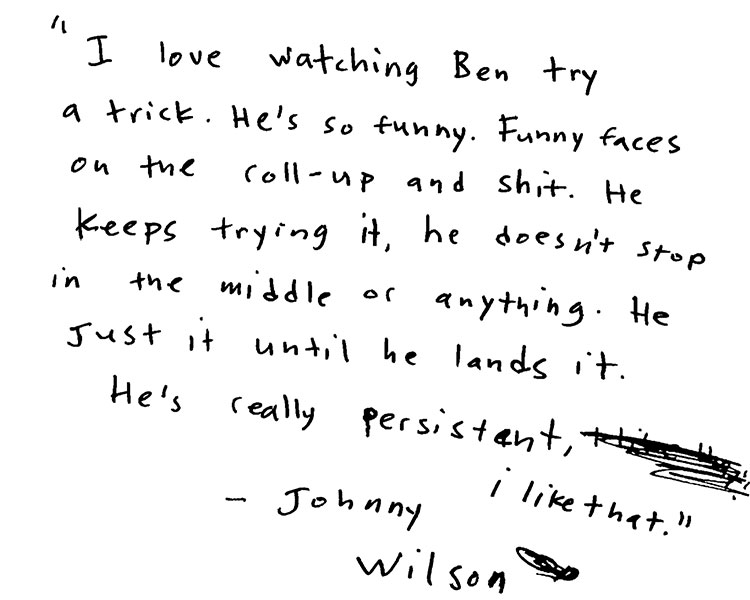 "I love watching Ben try
a trick. He's so funny. Funny faces
on the roll-up and shit. He
keeps trying it, he doesn't stop
in the middle or anything. He
Just it until he lands it.
He's really persistant,
i like that."
- Johnny
Wilson